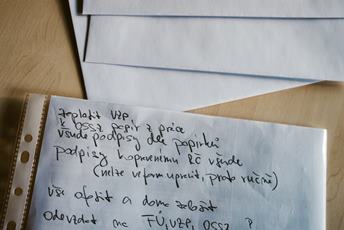 zaplatit VZP
k OSSZ papír z práce
všude podpisy dle papírků
podpisy k opravenému RČ všude
(nelze ve form upravit, proto ručně)
vše ofotit a doma založit
Odevzdat na FÚ, VZP, OSSZ ?